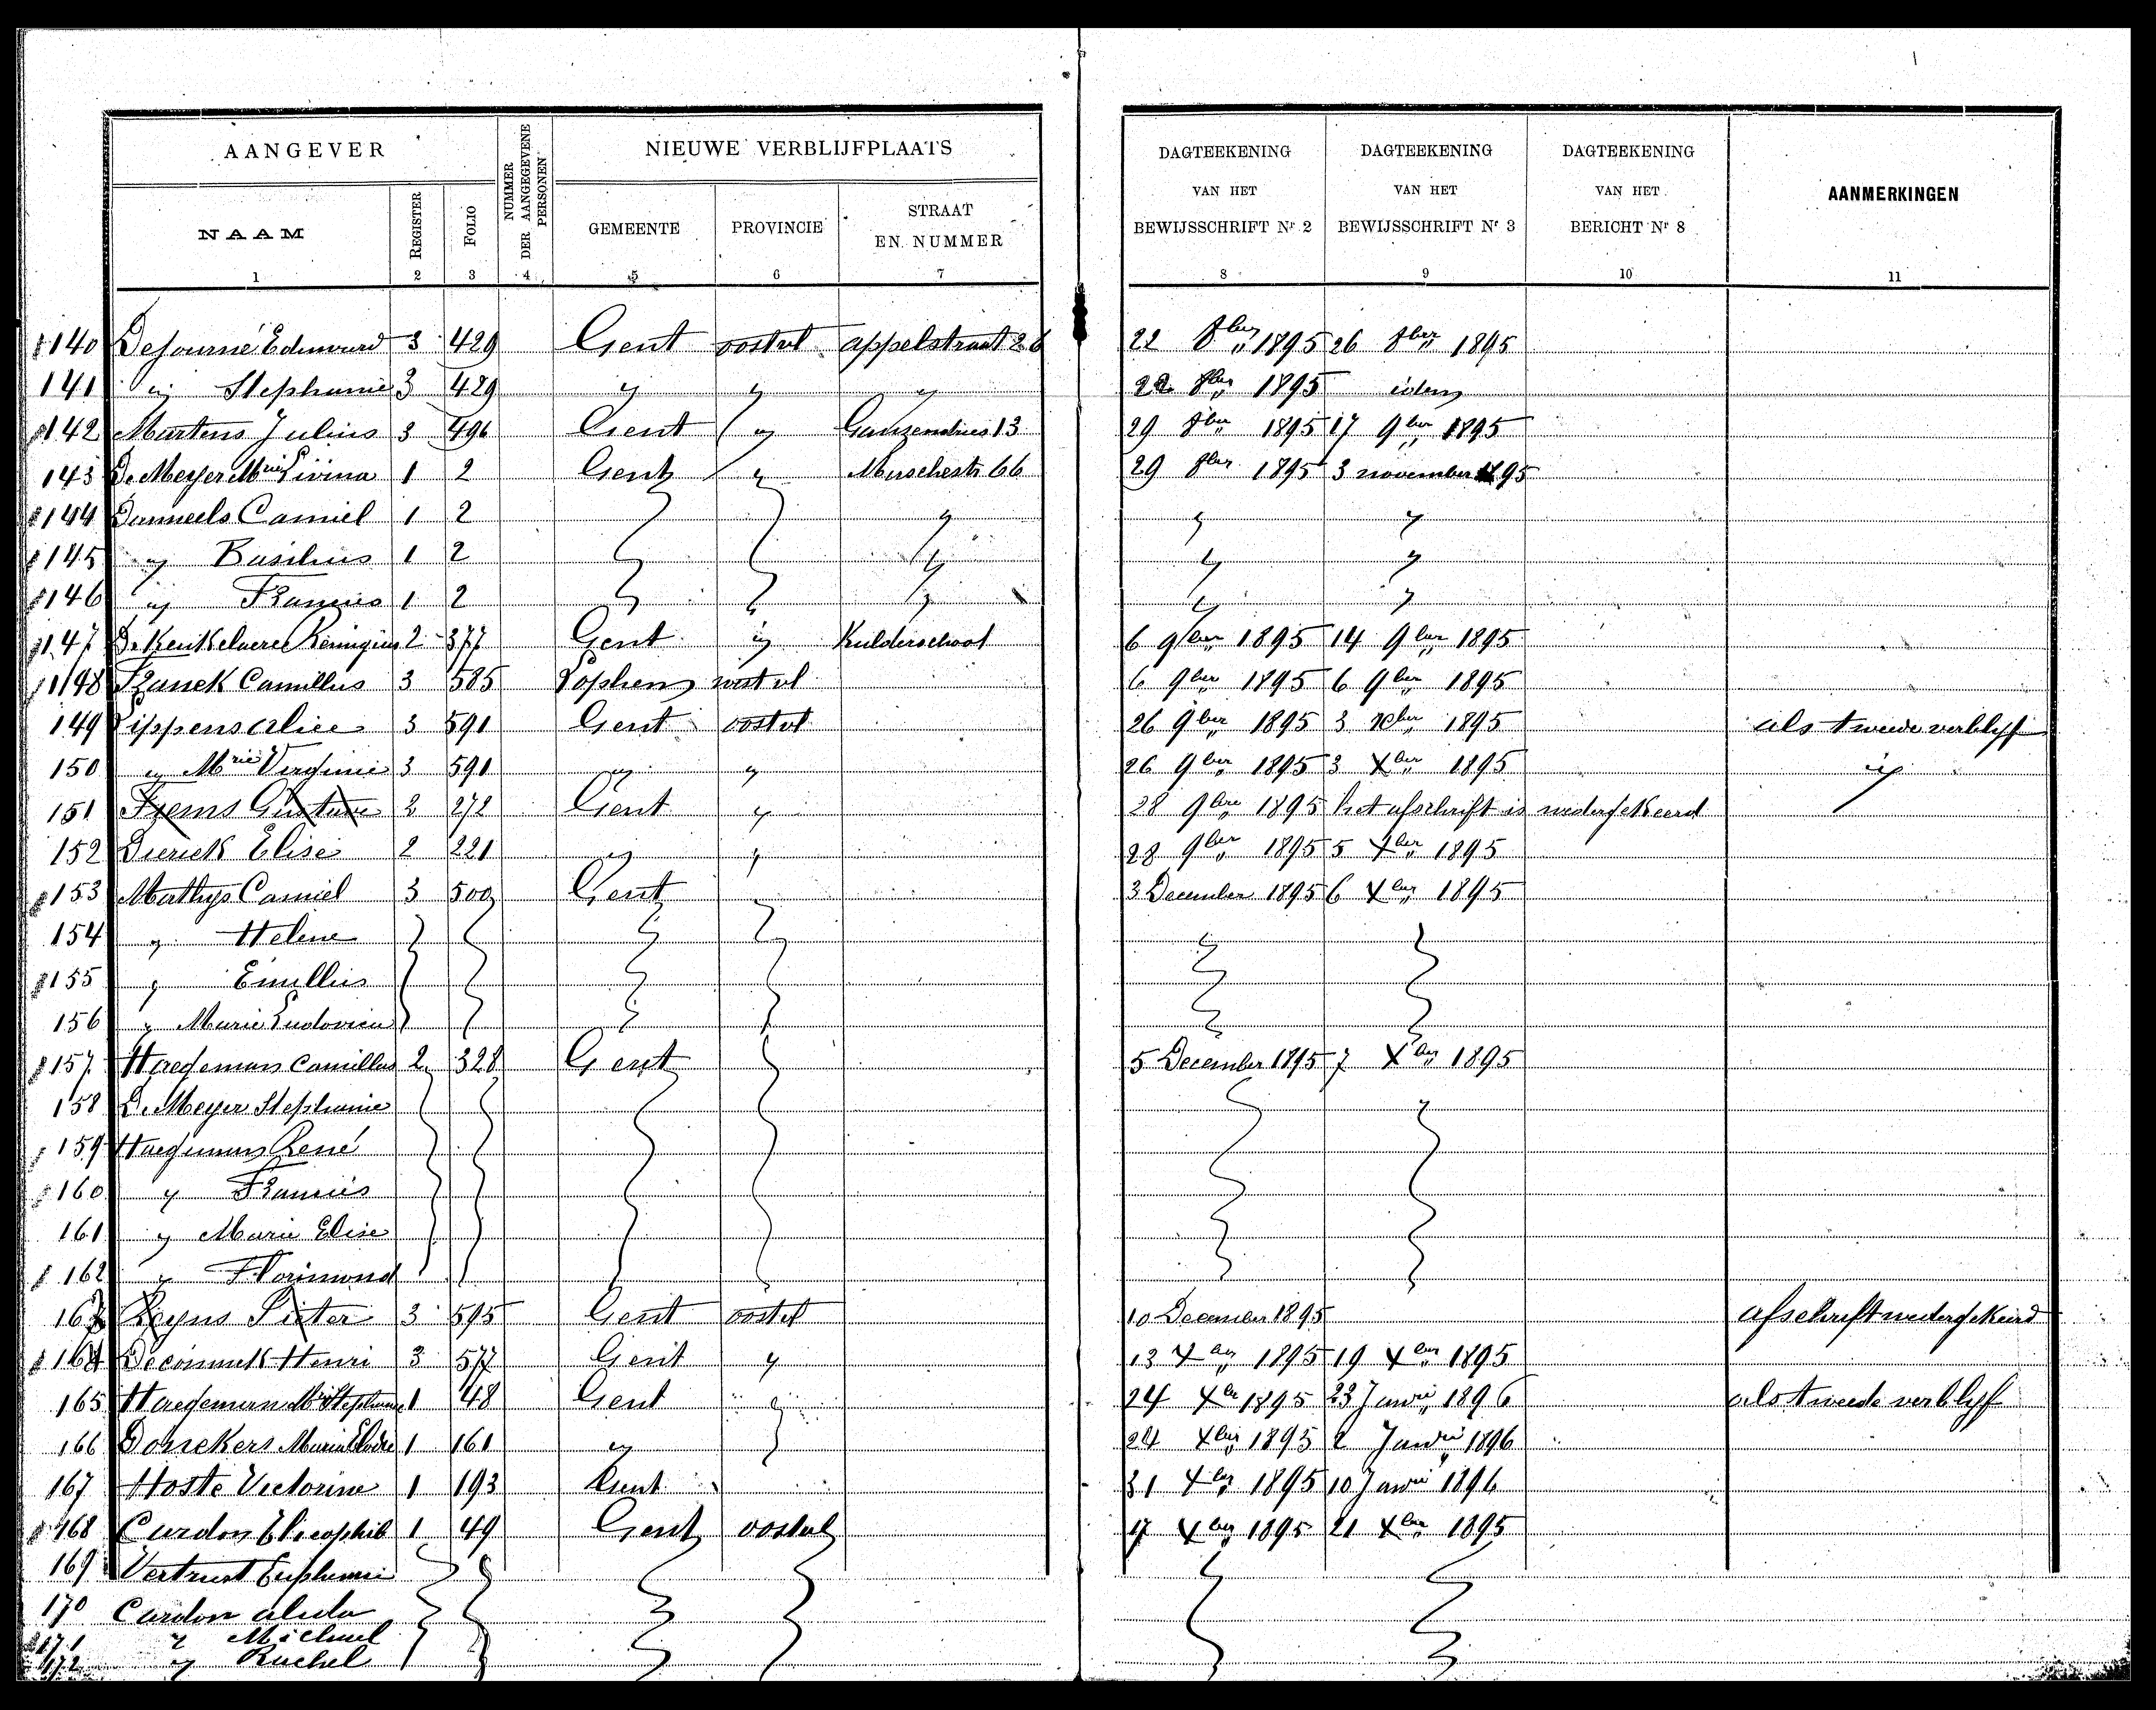 AANGEVER NUMMER DER AANGEGEVENE PERSONEN NIEUWE VERBLIJFPLAATS DAGTEEKENING VAN HET BEWIJSSCHRIFT Nr 2 DAGTEEKENING VAN HET BEWIJSSCHRIFT Nr 3 DAGTEEKENING VAN HET BERICHT Nr 8 AANMERKINGEN
NAAM REGISTER FOLIO GEMEENTE PROVINCIE STRAAT EN NUMMER
1 2 3 4 5 6 7 8 9 10 11
140 3 429 Gent oostvl appelstraat 26 22 8ber 1895 26 8ber 1895
141 " Stephanie 3 429 " " " 22 8ber 1895 idem
142 Martens Julius 3 496 Gent " 13 29 8ber 1895 17 9ber 1895
143 De Meyer Mrie Livina 1 2 Gent " 66 29 8ber 1895 3 november 1895
144 Danneels Camiel 1 2 " " "
145 " Basilius 1 2 " " "
146 " Francies 1 2 " " "
147 Remigius 2 377 Gent " Kulderschool 6 9ber 1895 14 9ber 1895
148 Franck Camillus 3 585 westvl 6 9ber 1895 6 9ber 1895
149 Lippens alice 3 591 Gent oostvl 26 9ber 1895 3 10ber 1895 als tweede verblyf
150 " Mrie Virginie 3 591 " " 26 9ber 1895 3 Xber 1895 "
151 Gustave 2 272 Gent " 28 9bre 1895 het afschrift is wedergekeerd
152 Dierick Elise 2 221 " " 28 9ber 1895 5 Xber 1895
153 Mathys Camiel 3 500 Gent " 3 December 1895 6 Xber 1895
154 " Helene
155 " Emillus
156 " Marie Ludovica
157 Haegeman Camillus 2 328 Gent 5 December 1895 7 Xber 1895
158 De Meyer Stephanie
159 Haegeman René
160 " Francies
161 " Marie Elise
162 " Florimond
163 Reyns Pieter 3 595 Gent oostvl 10 December 1895 afschrift wedergekeerd
164 Deconinck Henri 3 577 Gent " 13 Xber 1895 19 Xber 1895
165 Haegeman Mrie Stephanie 1 48 Gent " 24 Xbr 1895 23 Janri 1896 als tweede verblyf
166 Donckers Maria Elodie 1 161 " 24 Xber 1895 2 Janri 1896
167 Hoste Victorine 1 193 Gent 31 Xber 1895 10 Janri 1896
168 Cardon 1 49 Gent oostvl 17 Xber 1895 21 Xber 1895
169 Euphemie
170 Cardon alida
171 " Michael
172 " Rachel